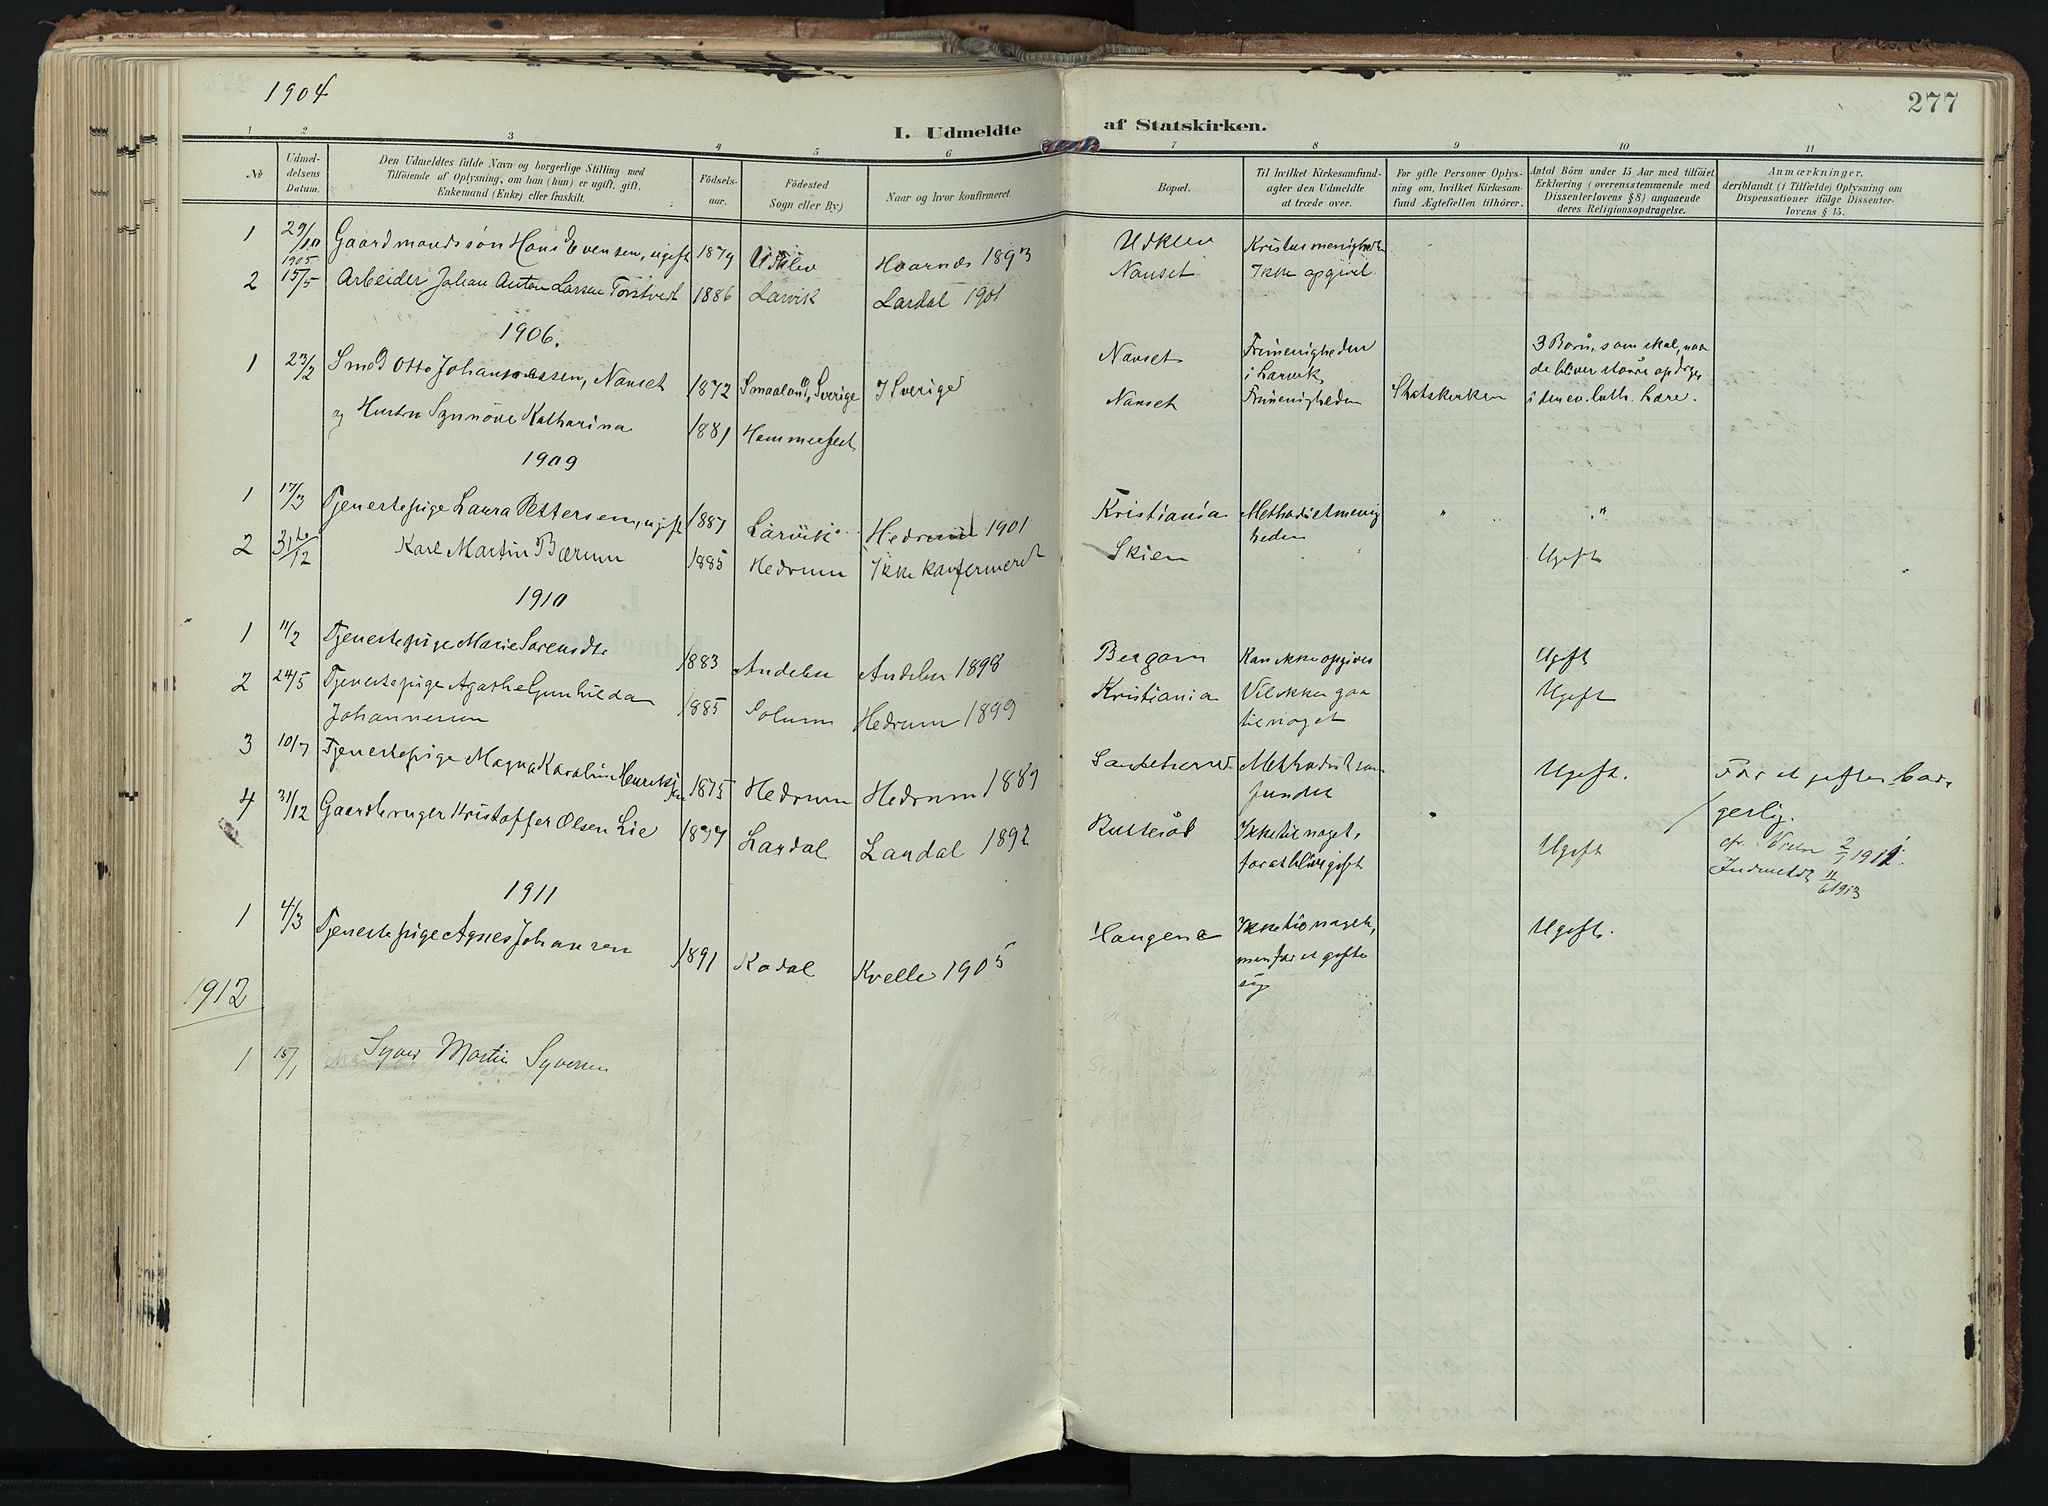 1904
277
I. Udmeldte af Statskirken.
1 2 3 4 5 6 7 8 9 10 11
№
Udmel-
delsens
Datum.
Den Udmeldtes fulde Navn og borgerlige Stilling med
Tilföiende af Oplysning, om han (hun) er ugift, gift,
Enkemand (Enke) eller fraskilt.
Födsels-
aar.
Födested
Sogn eller By)
Naar og hvor konfirmeret.
Bopæl.
Til hvilket Kirkesamfund-
agter den Udmeldte
at træde over.
For gifte Personer Oplys-
ning om, hvilket Kirkesam-
fund Ægtefællen tilhörer.
Antal Börn under 15 Aar med tilföiet
Erklæring (overensstemmende med
Dissenterlovens § 8) angaaende
deres Religionsopdragelse.
Anmærkninger,
deriblandt (i Tilfælde) Oplysning om
Dispensationer ifölge Dissenter-
lovens § 15.
1 29/10 Gaardmandssön Hans Evensen, ugift 1879 Udklev Hvarnes 1893 Udklev Kristusmenigheden
1905
2 15/5 Arbeider Johan Anton Larsen Torstvedt 1886 Larvik Lardal 1901 Nanset Ikke opgivet
1906.
1 23/2 Smed Otto Johannessen, Nanset 1872 Smaaland, Sverige I Sverige Nanset Frimenigheden
i Larvik
3 Börn, som skal, naar
de bliver större opdrages
i den ev. luth. Lære.
og Hustru Synnöve Katharina 1881 Hammerfest Nanset Frimenigheden Statskirken
1909
1 17/3 Tjenestepige Laura Pettersen, ugift 1887 Larvik Hedrum 1901 Kristiania Methodistmenig
heden " " "
2 31te/12 Karl Martin Bærum 1885 Hedrum Ikke konfirmeret Skien Ugift
1910
1 11/2 Tjenestepige Marie Sorensdtr 1883 Andebu Andebu 1898 Bergan Kan ikke opgives Ugift
2 24/5 Tjenestepige Agathe Gunhilda
Johannessen 1885 Solum Hedrum 1899 Kristiania Vil ikke gaa
til noget Ugift
3 10/7 Tjenestepige Magna Karoline Henriksen 1875 Hedrum Hedrum 1889 Sandeherred Methodistsam
fundet Ugift. For at giftes bor-
gerlig.
4 31/12 Gaardbruger Kristoffer Olsen Lie 1877 Lardal Lardal 1892 Ikke til noget,
for at blive gift " Ugift
2/9 1911.
Indmeldt 11/6 1913
1911
1 4/3 Tjenestepige Agnes Johansen 1891 Kodal Kvelle 1905 Haugene Ikke til noget,
men for at gifte
sig Ugift.
1912
1 15/1 Syver Martin Syversen